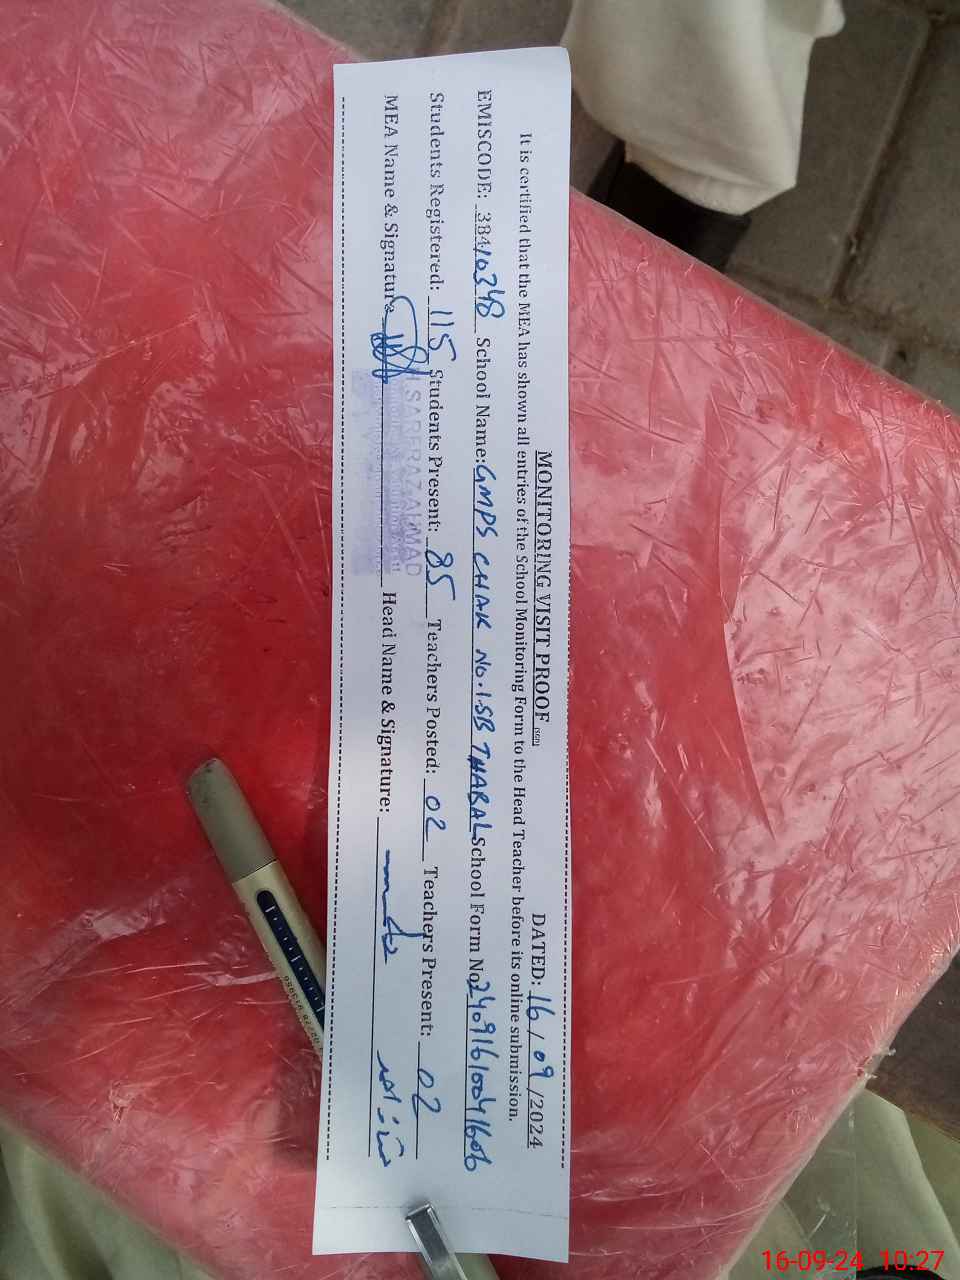 MONITORING VISIT PROOF (SGD) DATED: 16 / 09 /2024
It is certified that the MEA has shown all entries of the School Monitoring Form to the Head Teacher before its online submission.
EMISCODE: 38410348 School Name: GMPS CHAK NO.1.SB THABAL School Form No 24091610041606
Students Registered: 115 Students Present: 85 Teachers Posted: 02 Teachers Present: 02
MEA Name & Signature Head Name & Signature:
SARFRAZ AHMAD
16-09-24 10:27